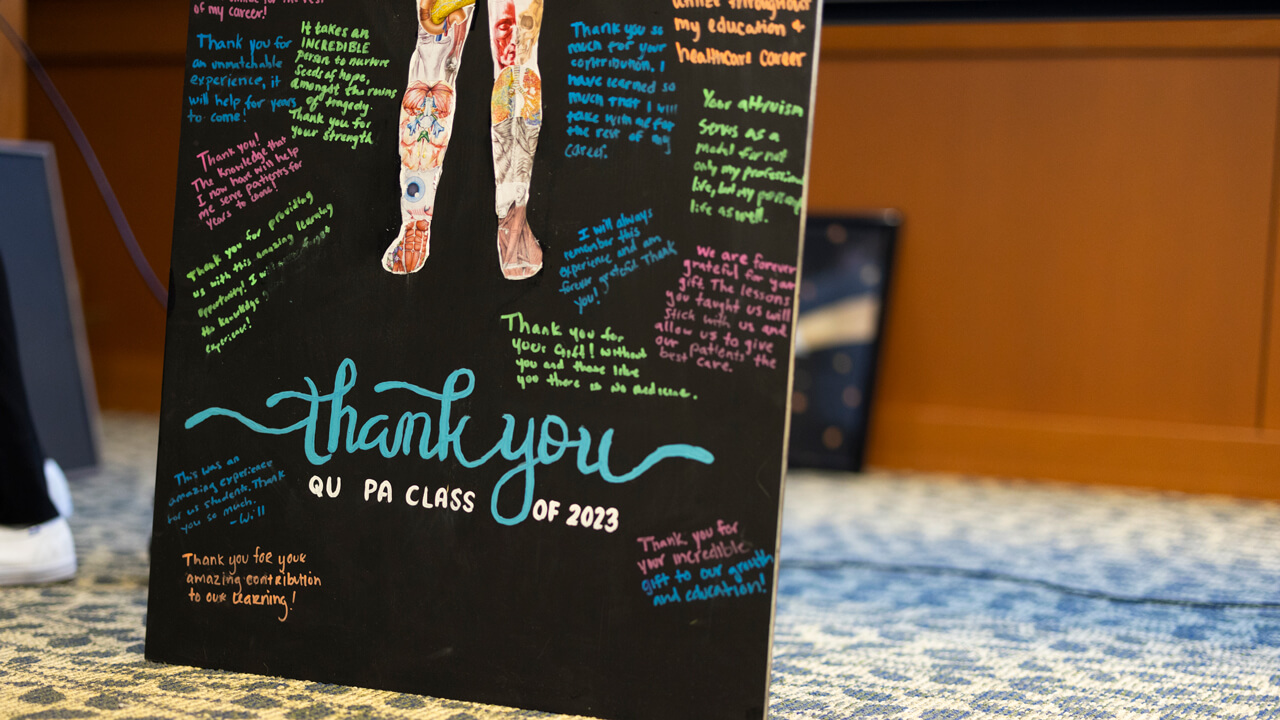 of my career!
Thank you for
an unmatchable
experience, it
will help for years
to come!
It takes an
INCREDIBLE
person to nurture
seeds of hope,
amongst the ruins
of tragedy.
Thank you for
your strength
Thank you!
The knowledge that
I now have will help
me serve patients for
years to come!
Thank you for providing
us with this amazing learning
opportunity! I will
the knowledge
experience!
Thank you so
much for your
contribution, I
have learned so
much that I will
take with me for
the rest of my
career.
my education +
healthcare career
Your altruism
serves as a
model for not
only my professional
life, but my personal
life as well.
I will always
remember this
experience and am
forever grateful. Thank
you!
We are forever
grateful for your
gift. The lessons
you taught us will
stick with us and
allow us to give
our patients the
best care.
Thank you for
your Gift! Without
you and those like
you there is no medicine.
thank you
QU PA CLASS OF 2023
This was an
amazing experience
for us students. Thank
you so much.
-Will
Thank you for your
amazing contribution
to our learning!
Thank you for
your incredible
gift to our growth
and education!